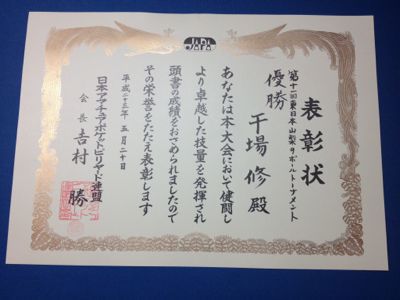 JAPA
表彰状
第十一回東日本山梨9ボールトーナメント
優勝
干場修殿
あなたは本大会において健闘し
より卓越した技量を発揮され
頭書の成績をおさめられましたので
その栄誉をたたえ表彰します
平成二十三年五月二十日
日本アマチュアポケットビリヤード連盟
会長 吉村 勝